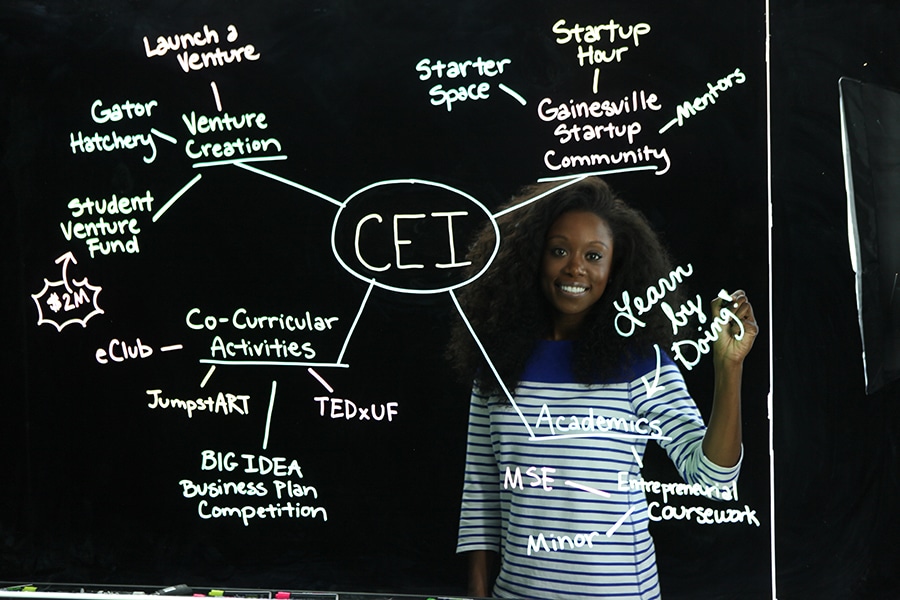 Launch a
Venture
Gator
Hatchery
Venture
Creation
Student
Venture
Fund
$2M
Starter
Space
Startup
Hour
Mentors
Gainesville
Startup
Community
CEI
Co-Curricular
Activities
eClub
JumpstART
TEDxUF
BIG IDEA
Business Plan
Competition
Learn
by
Doing
Academics
MSE
Entrepreneurial
Coursework
Minor